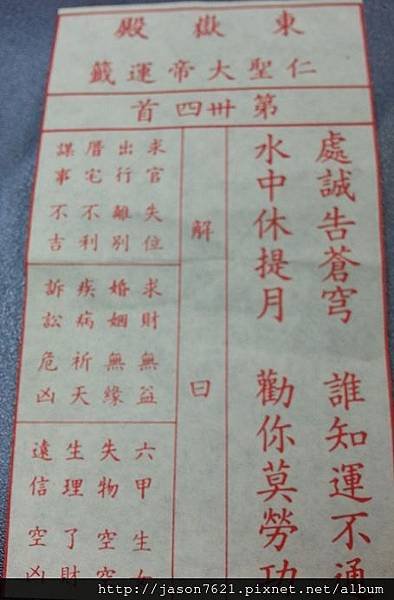 東嶽殿
仁聖大帝運籤
第卅四首
處誠告蒼穹 誰知運不通
水中休提月 勸你莫勞功
解曰
求官 失位
出行 離別
厝宅 不利
謀事 不吉
求財 無益
婚姻 無緣
疾病 祈天
訴訟 危凶
六甲 生
失物 空空
生理 了財
遠信 空凶
http://jason7621.pixnet.net/album